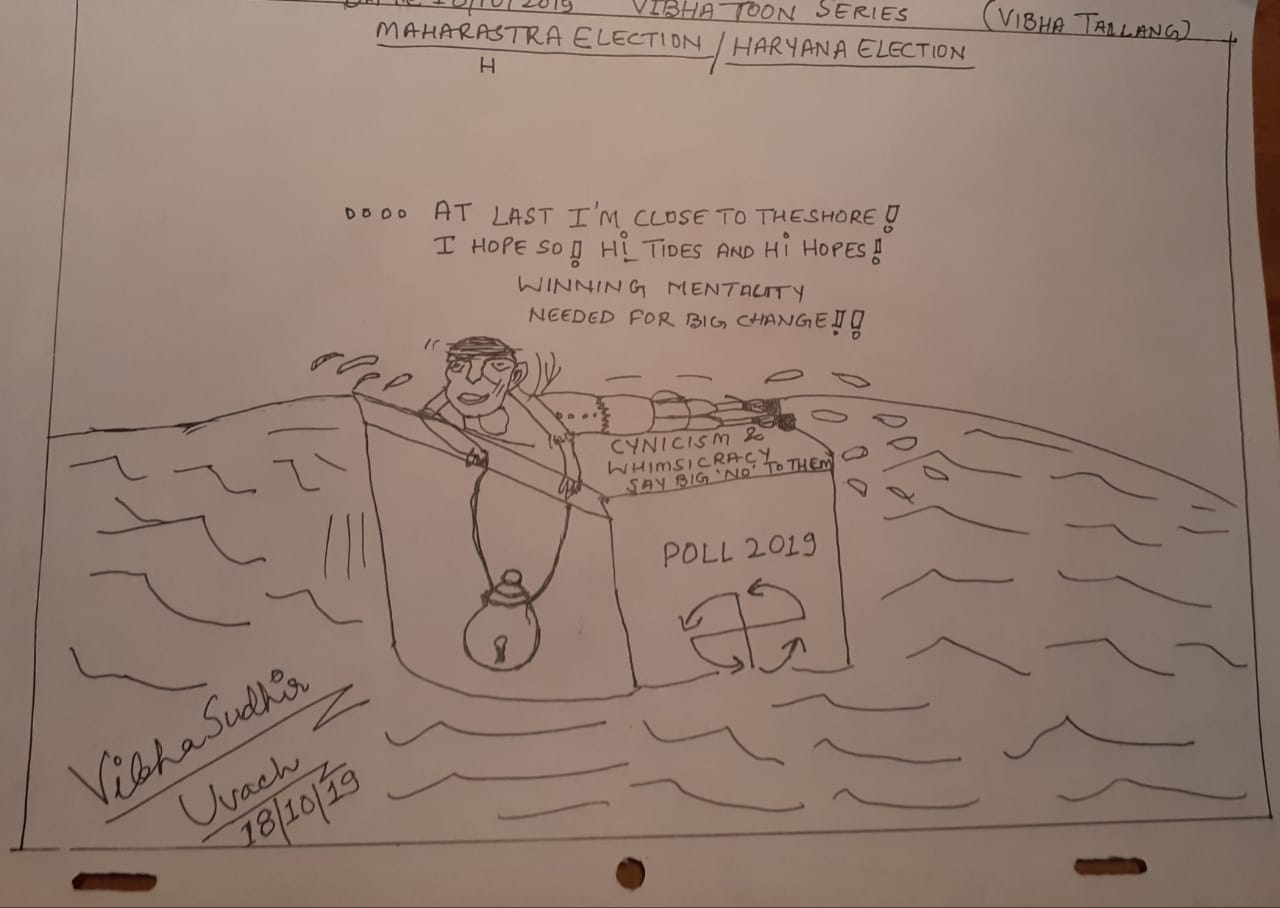 18/10/2019 VIBHA TOON SERIES (VIBHA TAILANG)
MAHARASTRA ELECTION / HARYANA ELECTION
H
.... AT LAST I'M CLOSE TO THESHORE!
I HOPE SO! Hi TIDES AND Hi HOPES!
WINNING MENTALITY
NEEDED FOR BIG CHANGE!!
CYNICISM &
WHIMSICRACY
SAY BIG 'NO' TO THEM
POLL 2019
Vibha Sudhir
Uvach
18/10/19